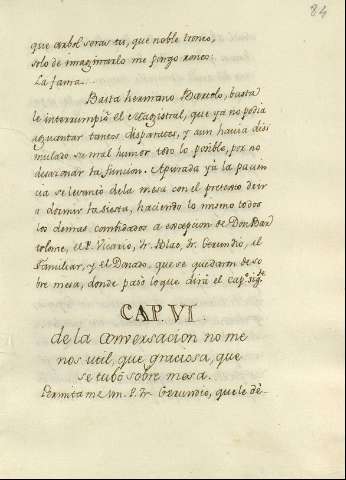 84
que arbol seras tu, que noble tronco,
solo de imaginarlo me pongo ronco:
La fama...
Basta hermano Bartolo, basta
le interrumpiò el Magistral, que yà no podia
aguantar tantos disparates, y aun havia disi
mulado su mal humor todo lo posible, por no
desazonàr la funcion. Apurada yà la pacien
cia se levantò de la mesa con el pretexto de ir
a dormir la siesta, haciendo lo mismo todos
los demas combidados a excepcion de Don Bar
tolome, el P. Vicario, fr. Blas, fr. Gerundio, el
Familiar, y el Donado, que se quedaron de so
bre mesa, donde pasò lo que dirà el cap.º sig.te
CAP. VI.
de la conversacion no me
nos util, que graciosa, que
se tubò sobre mesa.
Permitame Vm. P. fr. Gerundio, que le dè-